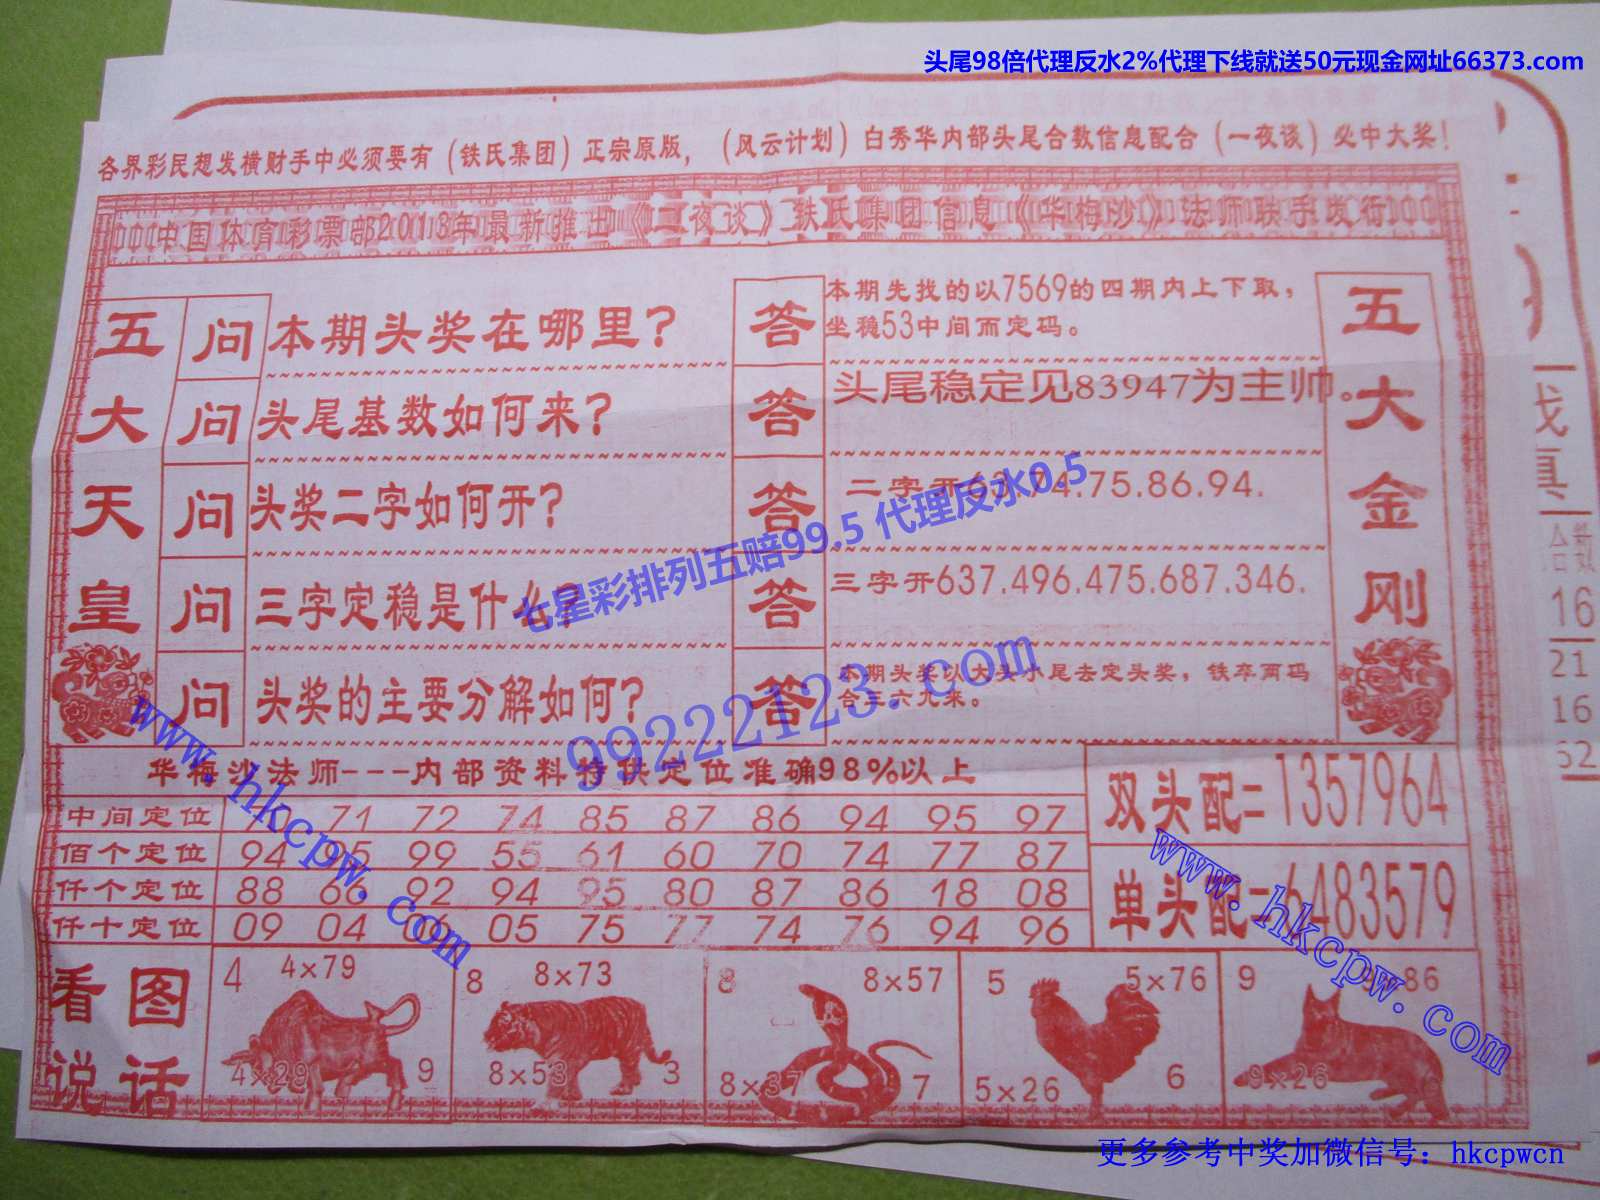 头尾98倍代理反水2%代理下线就送50元现金网址66373.com
各界彩民想发横财手中必须要有（铁氏集团）正宗原版，（风云计划）白秀华内部头尾合数信息配合（一夜谈）必中大奖！
中国体育彩票部2013年最新推出《二夜谈》铁氏集团信息《华梅沙》法师联手发行
五大天皇
问 本期头奖在哪里？
答 本期先找的以7569的四期内上下取，
坐稳53中间而定码。
问 头尾基数如何来？
答 头尾稳定见83947为主帅。
问 头奖二字如何开？
答 二字开63.74.75.86.94.
问 三字定稳是什么？
答 三字开637.496.475.687.346.
问 头奖的主要分解如何？
答 本期头奖以大头小尾去定头奖，铁卒两码
合三六九来。
五大金刚
七星彩排列五赔99.5 代理反水0.5
99222123.com
www.hkcpw.com
www.hkcpw.com
华梅沙法师---内部资料特供定位准确98%以上
中间定位 71 72 74 85 87 86 94 95 97
佰个定位 94 95 99 55 61 60 70 74 77 87
仟个定位 88 66 92 94 95 80 87 86 18 08
仟十定位 09 04 06 05 75 77 74 76 94 96
双头配=1357964
单头配=6483579
看图说话
4 4×79
4×29 9
8 8×73
8×53 3
8 8×57
8×37 7
5 5×76
5×26 6
9 9×86
9×26
16
21
16
52
更多参考中奖加微信号：hkcpwcn